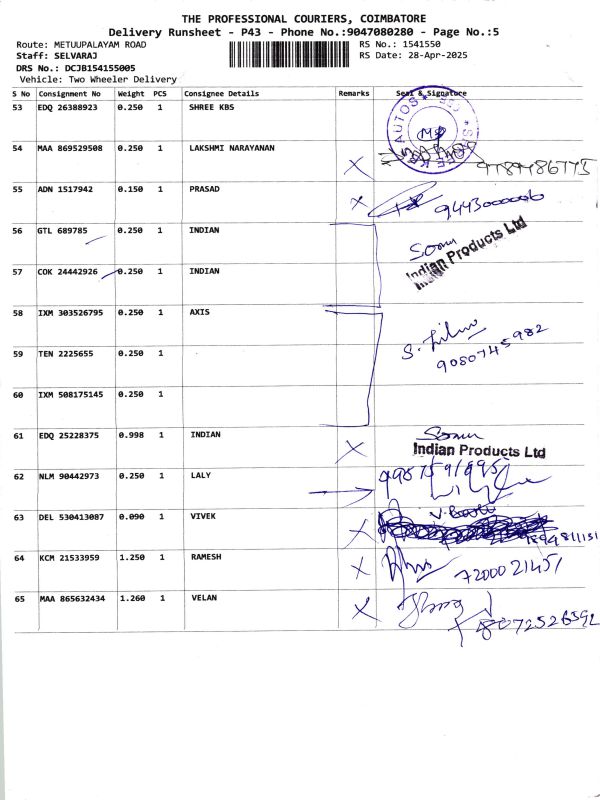 THE PROFESSIONAL COURIERS, COIMBATORE
Delivery Runsheet - P43 - Phone No.:9047080280 - Page No.:5
Route: METUUPALAYAM ROAD RS No.: 1541550
Staff: SELVARAJ RS Date: 28-Apr-2025
DRS No.: DCJB154155005
Vehicle: Two Wheeler Delivery
S No Consignment No Weight PCS Consignee Details Remarks Seal & Signature
53 EDQ 26388923 0.250 1 SHREE KBS
AUTOS
54 MAA 869529508 0.250 1 LAKSHMI NARAYANAN X 9789786775
55 ADN 1517942 0.150 1 PRASAD X 9443000006
56 GTL 689785 0.250 1 INDIAN
Indian Products Ltd
57 COK 24442926 0.250 1 INDIAN
58 IXM 303526795 0.250 1 AXIS
9080745982
59 TEN 2225655 0.250 1
60 IXM 508175145 0.250 1
61 EDQ 25228375 0.998 1 INDIAN X
Indian Products Ltd
62 NLM 90442973 0.250 1 LALY
63 DEL 530413087 0.090 1 VIVEK X
64 KCM 21533959 1.250 1 RAMESH X 7200021451
65 MAA 865632434 1.260 1 VELAN X
8072526592